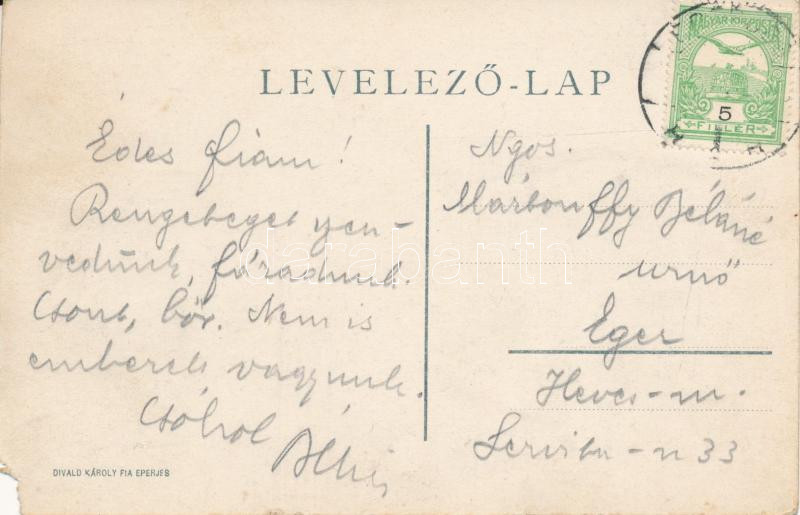 LEVELEZŐ-LAP
MAGYAR KIR. POSTA
5
FILLÉR
Édes fiam!
Rengeteget szen-
vedünk, fáradunk.
Csont, bőr. Nem is
emberek vagyunk.
Csókol
DIVALD KÁROLY FIA EPERJES
Ngos.
Mártonffy Béláné
urnő
Eger
Heves-m.
Servita-u 33
darabanth